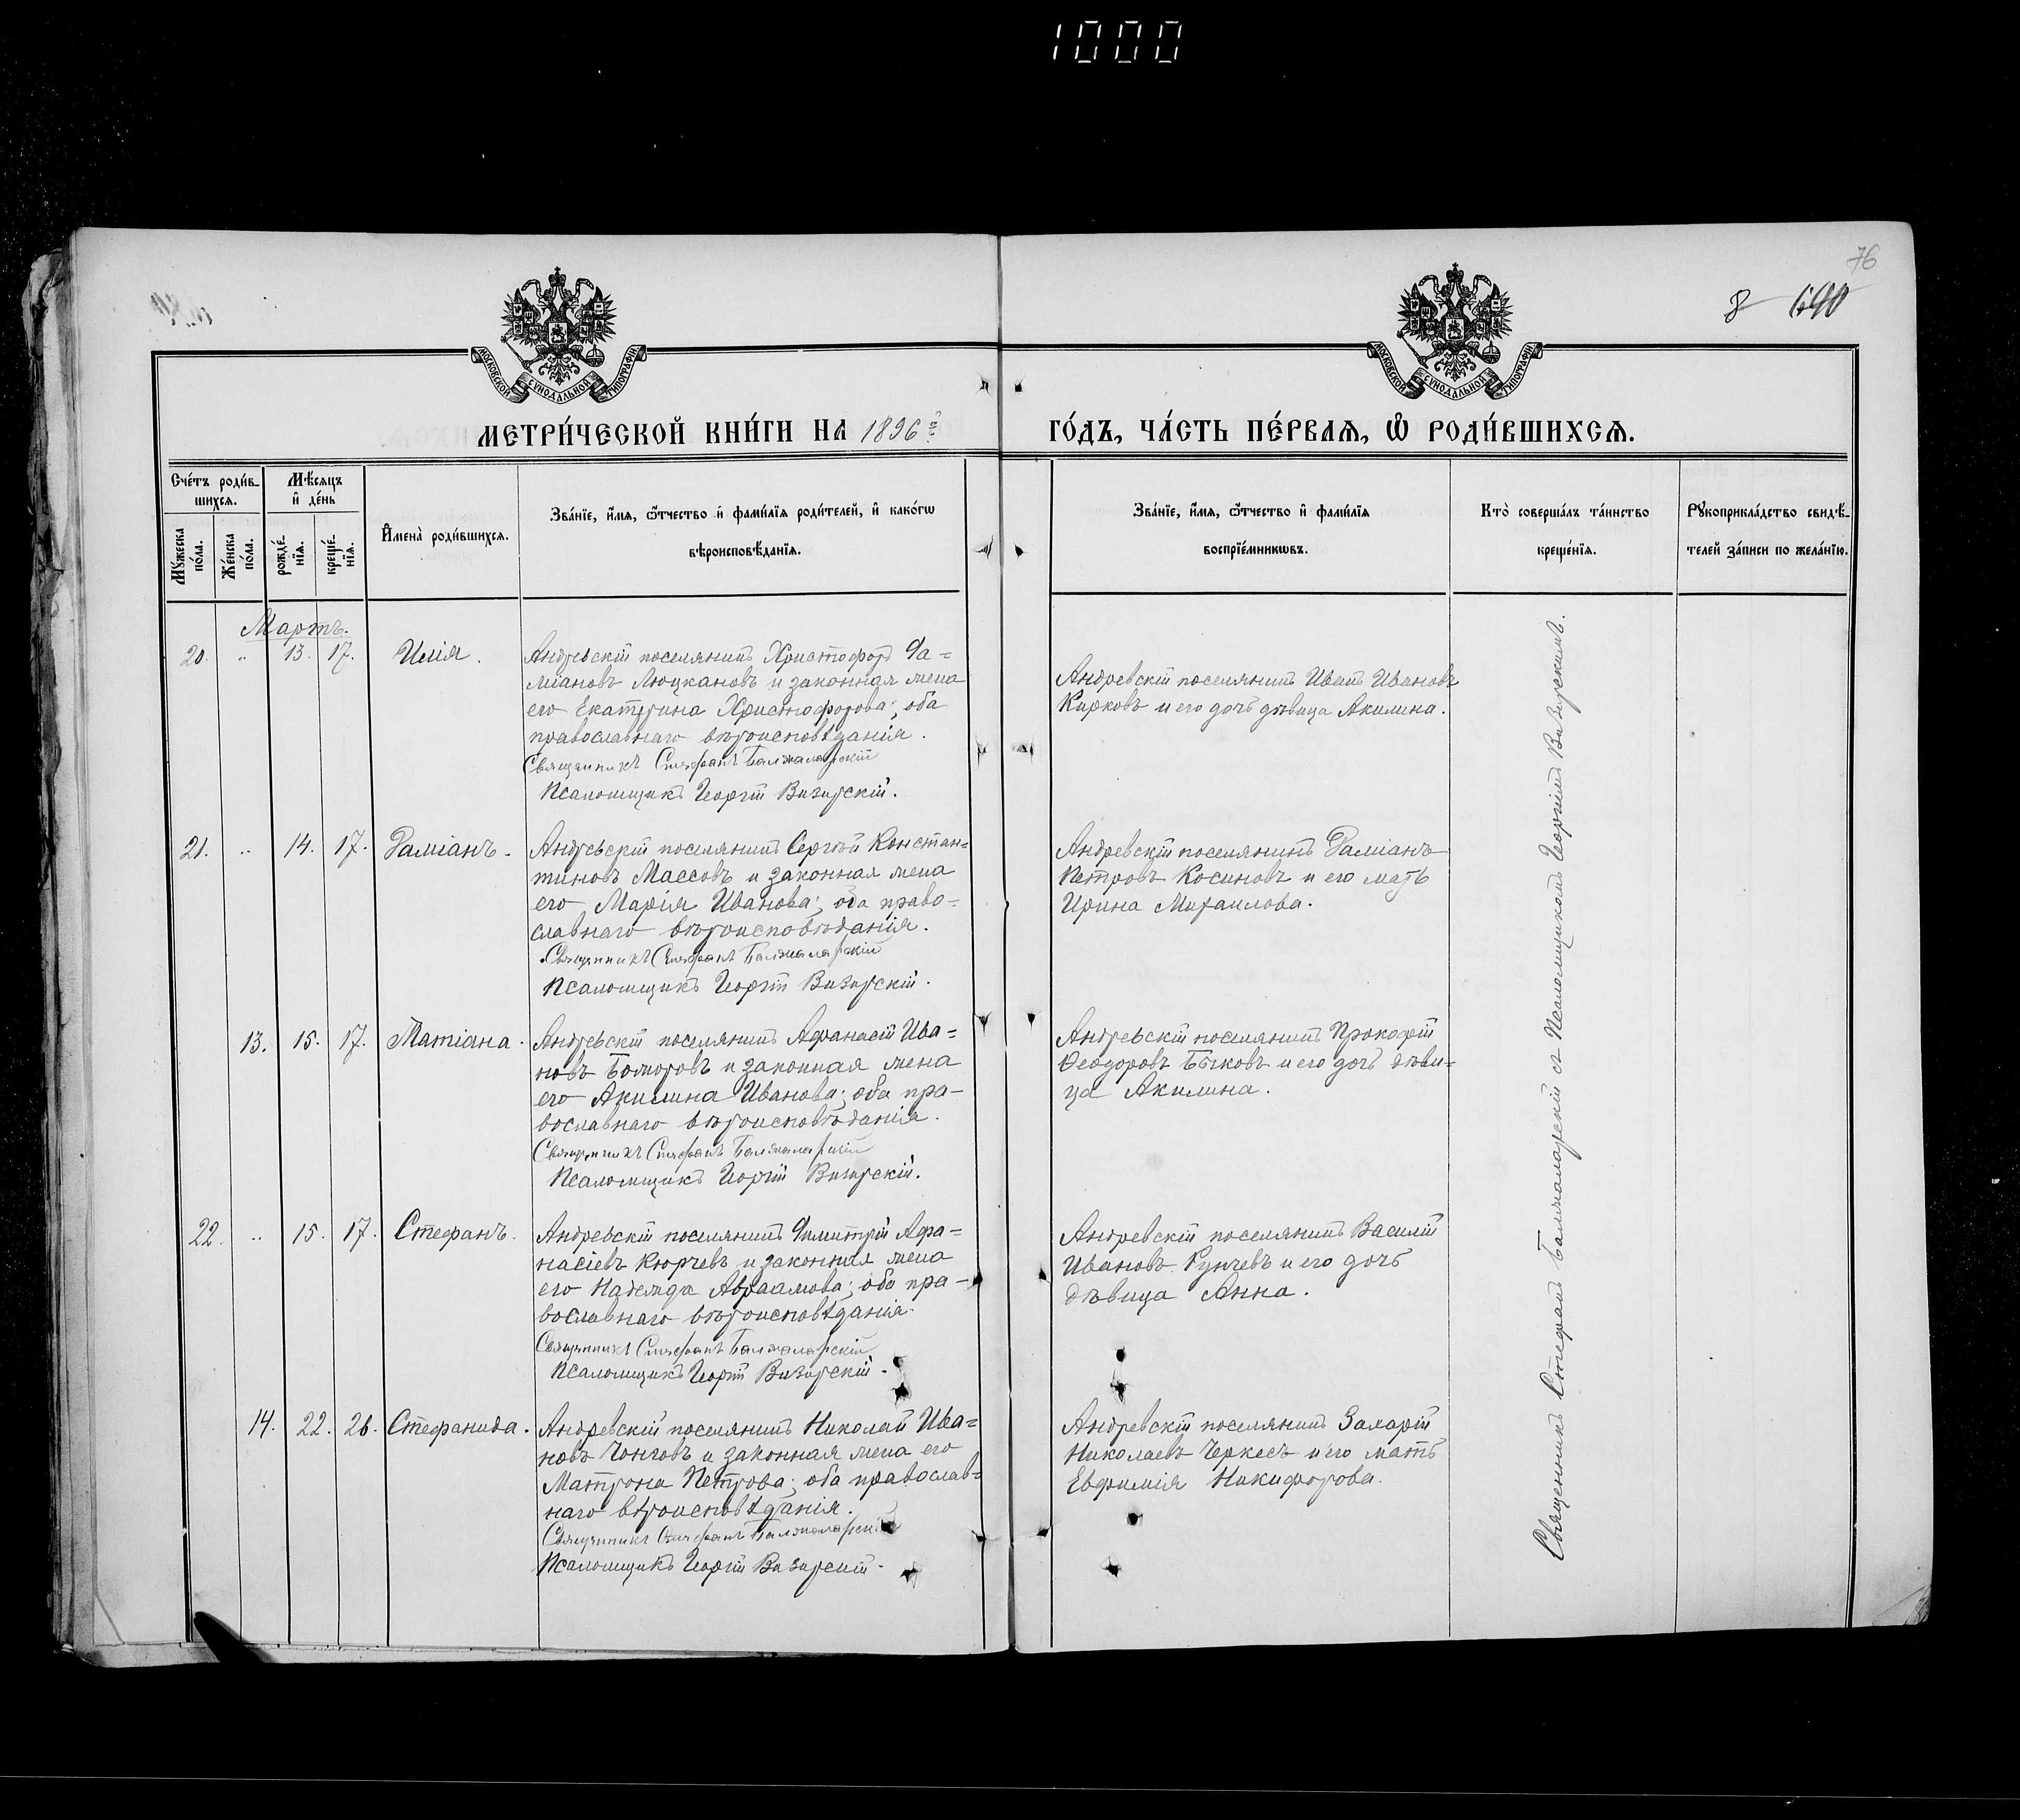 1000
76
8 690
МОСКОВСКОЙ СУНОДАЛЬНОЙ ТИПОГРАФИИ
МОСКОВСКОЙ СУНОДАЛЬНОЙ ТИПОГРАФИИ
МЕТРИ́ЧЕСКОЙ КНИ́ГИ НА 1896й
ГО́ДЪ, ЧА́СТЬ ПЕ́РВАЯ, Ѡ РОДИ́ВШИХСЯ.
Сче́тъ роди́в-
шихся.
Му́жеска по́ла.
Же́нска по́ла.
Мѣ́сяцъ
и де́нь
рожде́нїя.
креще́нїя.
Имена̀ роди́вшихся.
Зва́нїе, и́мя, ѻ́тчество и фами́лїя роди́телей, и како́гѡ
вѣроисповѣ́данїя.
Зва́нїе, и́мя, ѻ́тчество и фами́лїя
воспрїе́мникѡвъ.
Кто̀ соверша́лъ та́инство
креще́нїя.
Рꙋкоприкла́дство свидѣ́-
телей за́писи по жела́нїю.
Мартъ.
20. " 13. 17. Илія.
Андревскій поселянинъ Христофоръ Да=
міановъ Люцкановъ и законная жена
его Екатерина Христофорова; оба
православнаго вѣроисповѣданія.
Священникъ Стефанъ Балжаларскій
Псаломщикъ Георгій Визирскій.
Андревскій поселянинъ Иванъ Ивановъ
Кирковъ и его дочь дѣвица Акилина.
21. " 14. 17. Даміанъ.
Андревскій поселянинъ Сергѣй Констан=
тиновъ Массовъ и законная жена
его Марія Иванова; оба право=
славнаго вѣроисповѣданія.
Священникъ Стефанъ Балжаларскій
Псаломщикъ Георгій Визирскій.
Андревскій поселянинъ Даміанъ
Петровъ Косиновъ и его мать
Ирина Михаилова.
13. 15. 17. Татіана.
Андревскій поселянинъ Афанасій Ива=
новъ Божоровъ и законная жена
его Акилина Иванова; оба пра-
вославнаго вѣроисповѣданія.
Священникъ Стефанъ Балжаларскій
Псаломщикъ Георгій Визирскій.
Андревскій поселянинъ Прокофій
Ѳеодоровъ Бычковъ и его дочь дѣви=
ца Акилина.
22. " 15. 17. Стефанъ.
Андревскій поселянинъ Димитрій Афа=
насіевъ Кюрчевъ и законная жена
его Надежда Авраамова; оба пра-
вославнаго вѣроисповѣданія.
Священникъ Стефанъ Балжаларскій
Псаломщикъ Георгій Визирскій.
Андревскій поселянинъ Василій
Ивановъ Рунчевъ и его дочь
дѣвица Анна.
14. 22. 26. Стефанида.
Андревскій поселянинъ Николай Ива=
новъ Чонговъ и законная жена его
Матрона Петрова; оба православ=
наго вѣроисповѣданія.
Священникъ Стефанъ Балжаларскій
Псаломщикъ Георгій Визирскій.
Андревскій поселянинъ Захарій
Николаевъ Черкесъ и его мать
Евфимія Никифорова.
Священникъ Стефанъ Балжаларскій съ Псаломщикомъ Георгіемъ Визирскимъ.